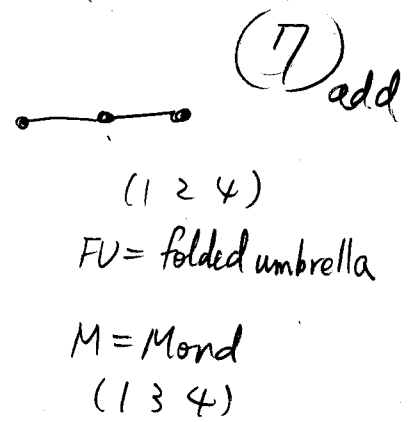 7 add
(1 2 4)
FU = folded umbrella
M = Mond
(1 3 4)